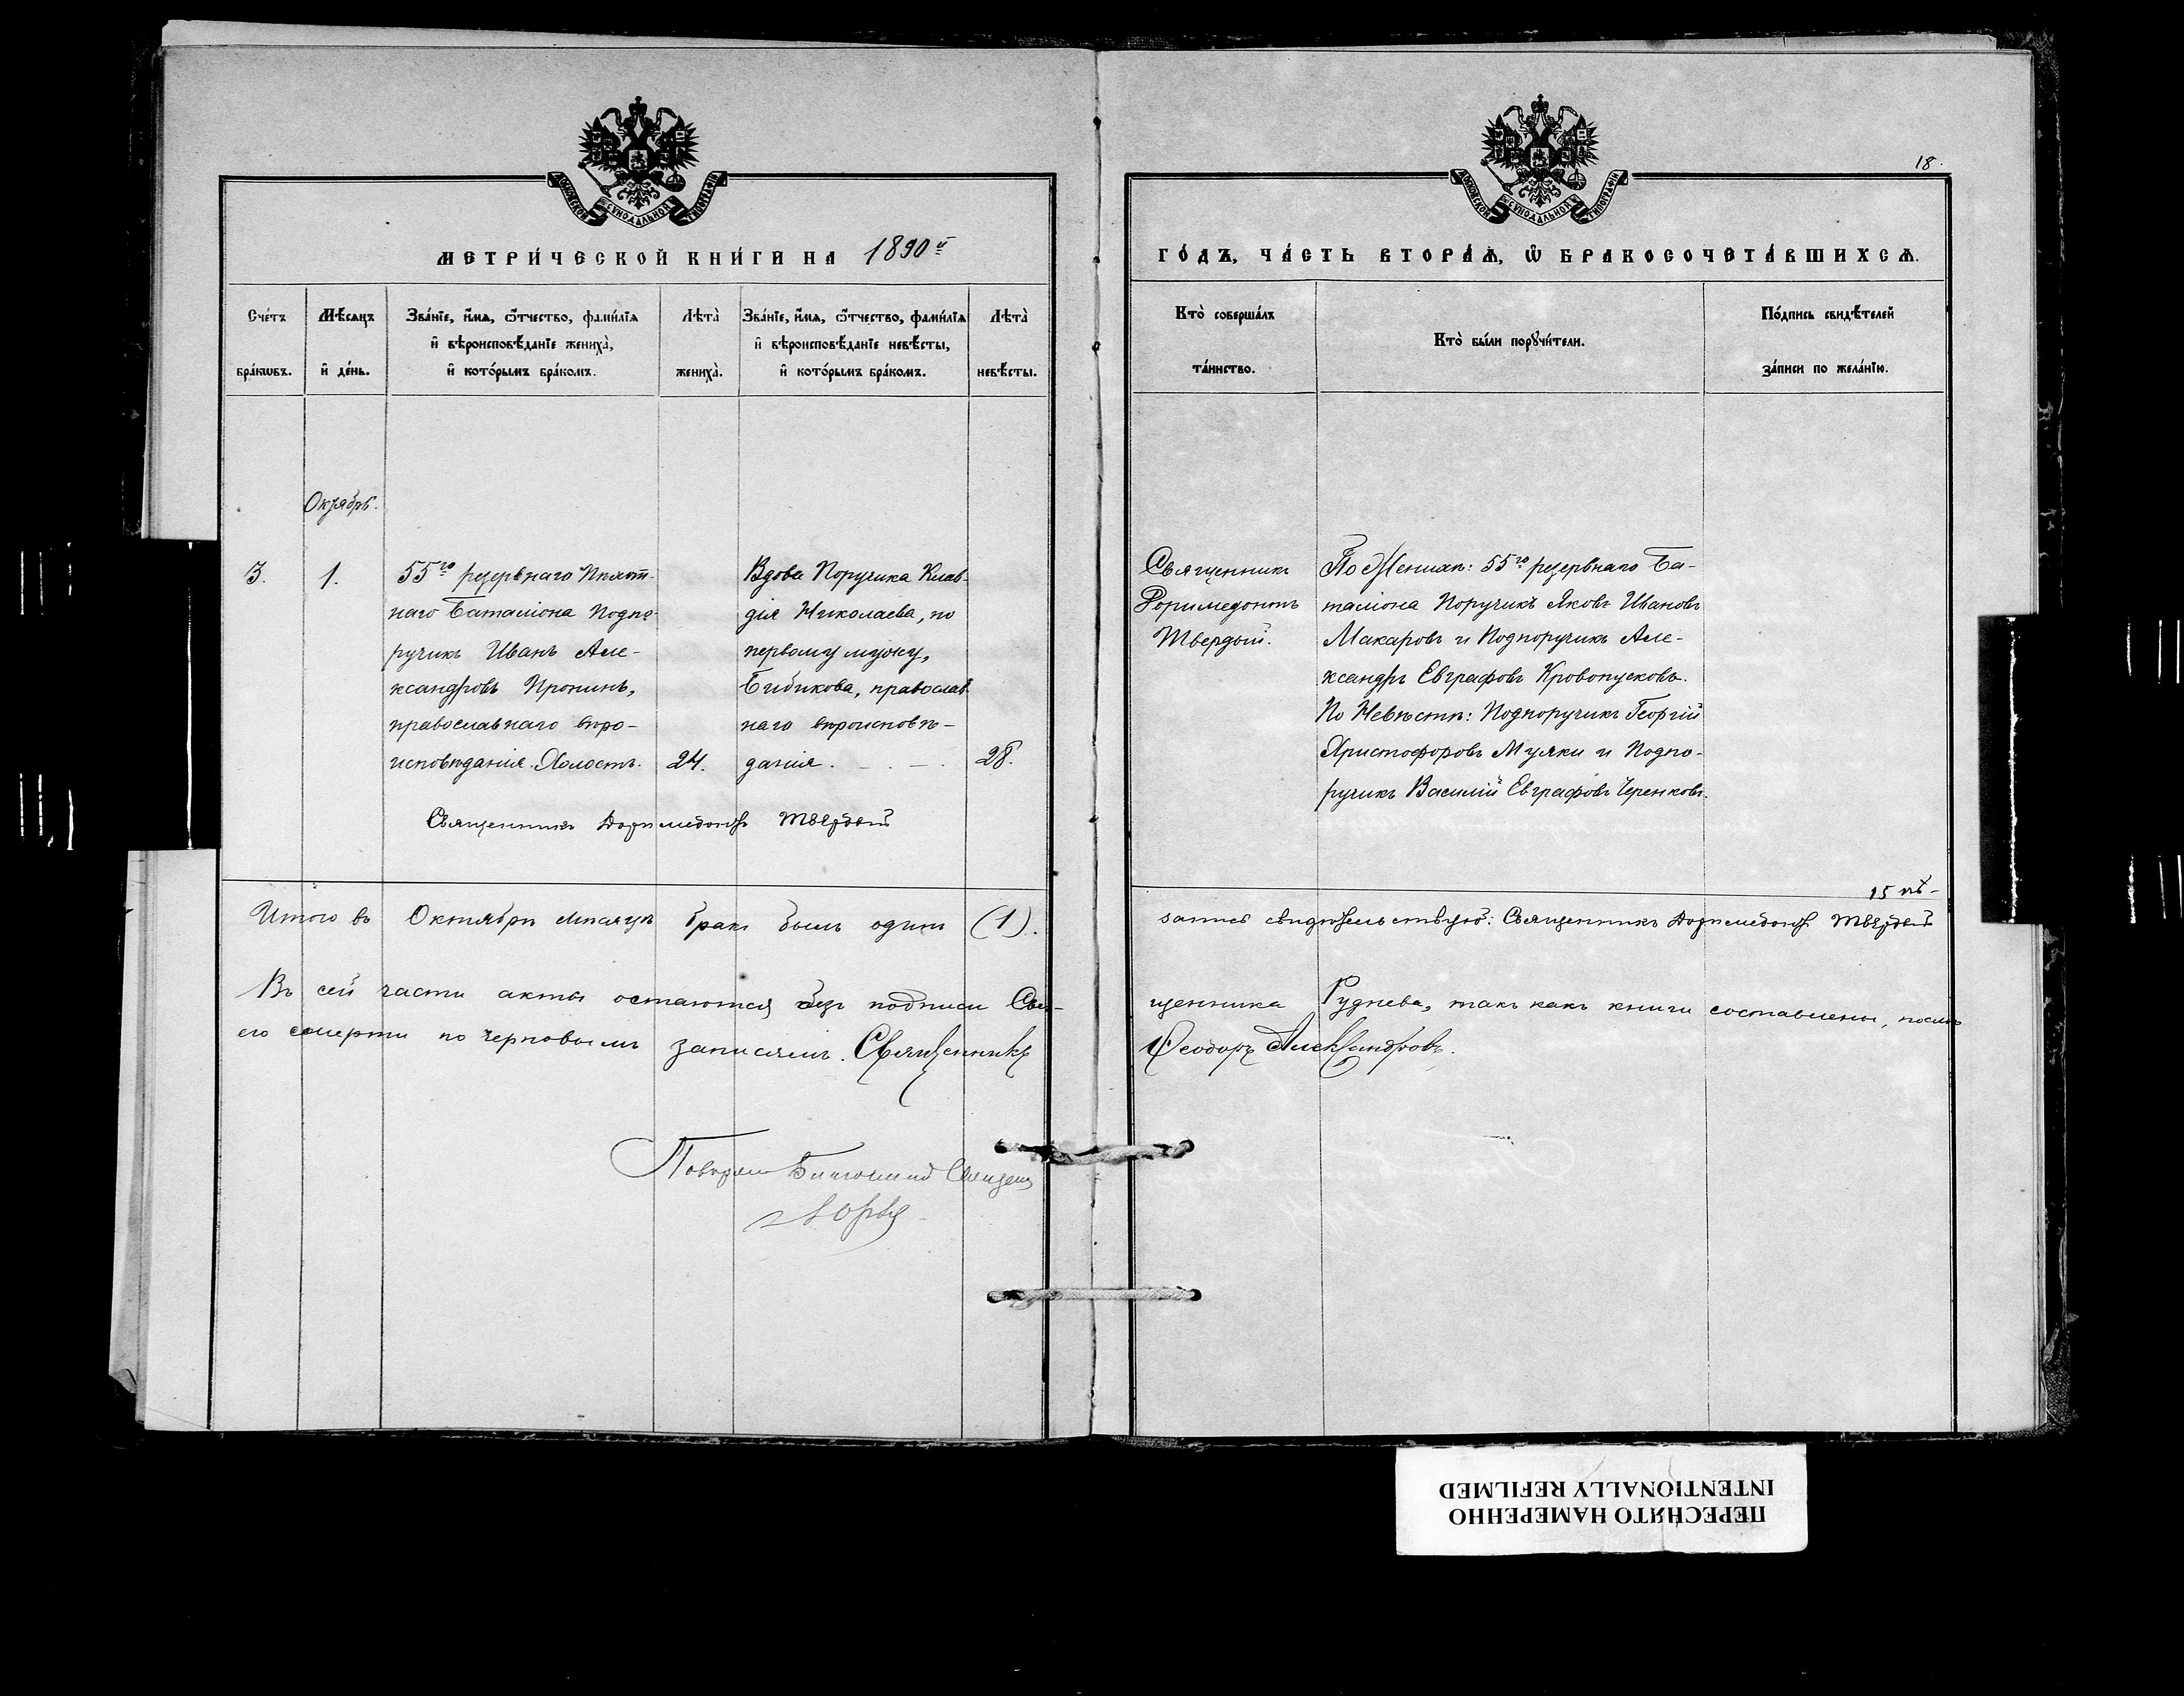 18.
МОСКОВСКОЙ СѴНОДАЛЬНОЙ ТИПОГРАФІИ
МЕТРИ́ЧЕСКОЙ КНИ́ГИ НА 1890й
Сче́тъ бра́кѡвъ.
Мѣ́сяцъ и҆ де́нь.
Зва́нїе, и҆́мѧ, ѻ҆́тчество, фами́лїѧ
и҆ вѣроисповѣ́данїе жениха̀,
и҆ кото́рымъ бра́комъ.
Лѣта̀ жениха̀.
Зва́нїе, и҆́мѧ, ѻ҆́тчество, фами́лїѧ
и҆ вѣроисповѣ́данїе невѣ́сты,
и҆ кото́рымъ бра́комъ.
Лѣта̀ невѣ́сты.
Октябрь.
3.
1.
55го резервнаго Пѣхот-
наго Баталіона Подпо-
ручикъ Иванъ Але-
ксандровъ Пронинъ,
православнаго вѣро-
исповѣданія. Холостъ.
24.
Вдова Поручика Клав-
дія Николаева, по
первому мужу,
Бибикова, православ-
наго вѣроисповѣ-
данія.
28.
Священникъ Доримедонтъ Твердый
Итого въ Октябрѣ мѣсяцѣ бракъ былъ одинъ (1).
Въ сей части акты остаются безъ подписи Свя-
его смерти по черновымъ записямъ. Священникъ
Повѣрялъ Благочинный Священ
МОСКОВСКОЙ СѴНОДАЛЬНОЙ ТИПОГРАФІИ
ГО́ДЪ, ЧА́СТЬ ВТОРА́Ѧ, Ѡ҆ БРАКОСОЧЕТА́ВШИХСѦ.
Кто̀ соверша́лъ та́инство.
Кто̀ бы́ли порꙋчи́тели.
По́дпись свидѣ́телей за́писи по жела́нїю.
Священникъ
Доримедонтъ
Твердый.
По Женихѣ: 55го резервнаго Ба-
таліона Поручикъ Яковъ Ивановъ
Макаровъ и Подпоручикъ Але-
ксандръ Евграфовъ Кровопусковъ.
По Невѣстѣ: Подпоручикъ Георгій
Христофоровъ Муяки и Подпо-
ручикъ Василій Евграфовъ Черенковъ.
запись свидѣтельствую: Священникъ Доримедонтъ Твердый
щенника Руднева, такъ какъ книги составлены, послѣ
Ѳеодоръ Александровъ.
ПЕРЕСНЯТО НАМЕРЕННО
INTENTIONALLY REFILMED